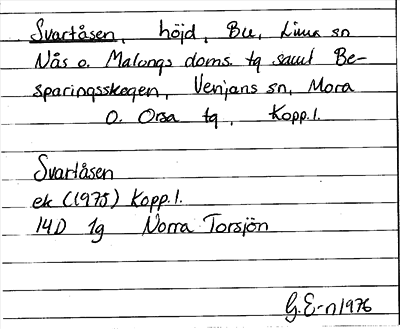 Svartåsen, höjd, Bu, Lima sn
Nås o. Malungs doms. tg samt Be-
sparingsskogen, Venjans sn, Mora
o. Orsa tg, Kopp.l.
Svartåsen
ek (1975) Kopp.l.
14D 1g Norra Torsjön
G.E-n 1976